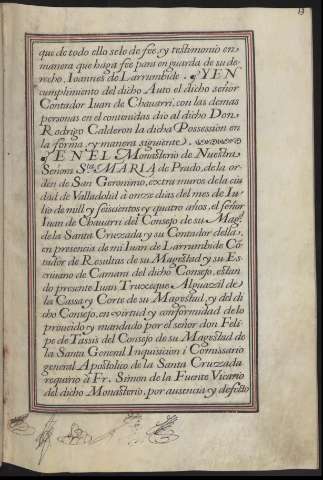 13
que de todo ello se le de fee, y testimonio en
manera que haga fee para en guarda de su de-
recho. Ioannes de Larrumbide. YEN
cumplimiento del dicho Auto el dicho señor
Contador Iuan de Chauarri, con las demas
personas en el contenidas dio al dicho Don
Rodrigo Calderon la dicha Possession en
la forma, y manera siguiente.
EN EL Monasterio de Nuestra
Señora Sta. MARIA de Prado, de la or-
den de San Geronimo, extra muros de la ciu-
dad de Valladolid à onze dias del mes de Iu-
lio de mill y seiscientos y quatro años, el señor
Iuan de Chauarri del Consejo de su Magd.
de la Santa Cruzada y su Contador della,
en presencia de mi Iuan de Larrumbide Cō-
tador de Resultas de su Magestad y su Es-
criuano de Camara del dicho Consejo, estan-
do presente Iuan Trucxeque Alguazil de
la Cassa y Corte de su Magestad, y del di-
cho Consejo, en virtud y conformidad de lo
proueido y mandado por el señor don Feli-
pe de Tassis del Consejo de su Magestad de
la Santa General Inquisicion i Comissario
general Apostolico de la Santa Cruzzada
requirio à Fr. Simon de la Fuente Vicario
del dicho Monasterio, por ausencia y defecto